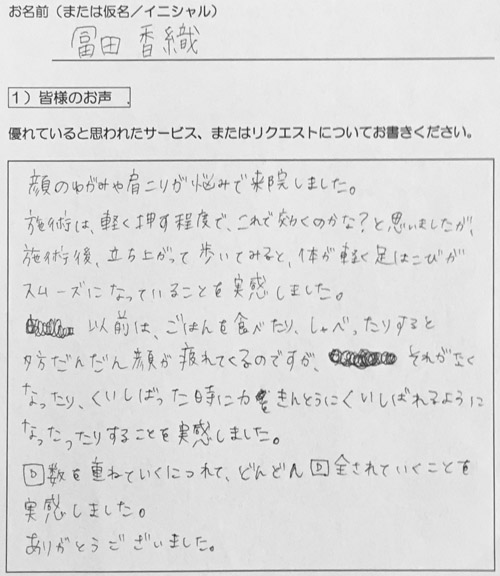 お名前（または仮名／イニシャル）
冨田 香織
1）皆様のお声
優れていると思われたサービス、またはリクエストについてお書きください。
顔のゆがみや肩こりが悩みで来院しました。
施術は、軽く押す程度で、これで効くのかな？と思いましたが、
施術後、立ち上がって歩いてみると、体が軽く足はこびが
スムーズになっていることを実感しました。
以前は、ごはんを食べたり、しゃべったりすると
夕方だんだん顔が疲れてくるのですが、それが無く
なったり、くいしばった時に力きんとうにくいしばれるように
なったったりすることを実感しました。
回数を重ねていくにつれて、どんどん回全されていくことを
実感しました。
ありがとうございました。